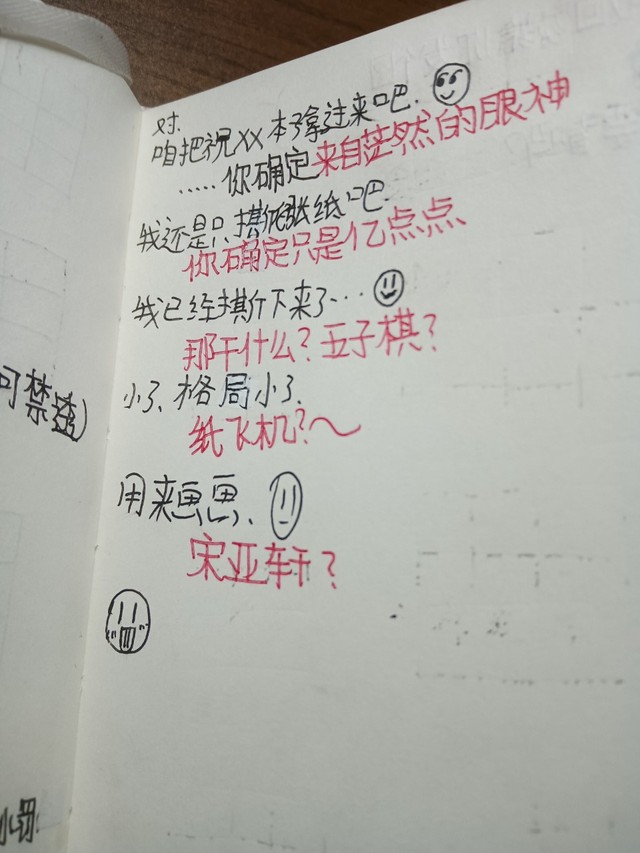 对.
咱把祝XX本子拿过来吧.
.....你确定来自茫然的眼神
我还是只撕张纸吧.
你确定只是亿点点、
我已经撕下来了...
那干什么？五子棋？
小了、格局小了.
纸飞机？～
用来画画、
宋亚轩？
可禁透)
小罚